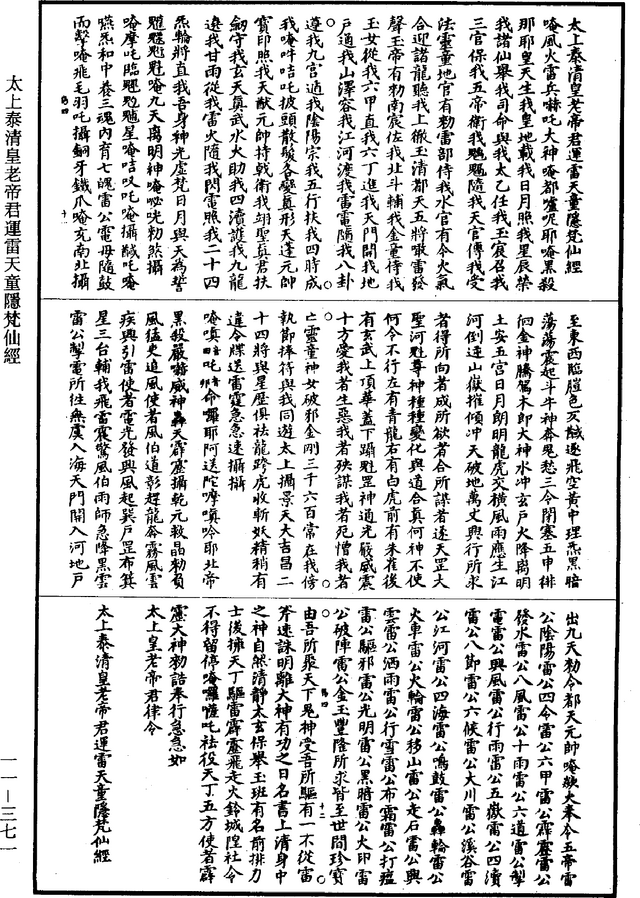 太上泰清皇老帝君運雷天童隱梵仙經
唵風火雷兵嚇吒大神唵都嚧呢耶唵黑殺
那耶皇天生我皇地載我日月照我星辰榮
我諸仙舉我司命與我太乙任我玉宸召我
三官保我五帝衛我魁魁隨我天官傳我受
法靈童地官有勑雷部侍我水官有令火氣
合迎諸龍聽我上徹玉清都天五將敢雷發
聲玉帝有勑南宸佐我北斗輔我金童侍我
玉女從我六甲直我六丁進我天門開我地
戶通我山澤容我江河渡我雷電隨我八卦
遵我九宮遁我陰陽宗我五行扶我四時成
我唵吽咭吒披頭散髮各變真形天蓬元帥
寶印照我天猷元帥持戟衛我翊聖真君扶
劒守我玄天真武水火助我四瀆護我九龍
遶我甘雨從我雷火隨我閃電照我二十四
炁輪將直我吾身神光虛梵日月與天為誓
唵九天离明神唵勑煞攝
唵摩吒臨星唵咭吒唵攝吒唵
嚥炁和中養三魂內育七魄雷公電母隨鼓
而擊唵飛毛羽吒攝翻牙鐵爪唵克南北攝
至東西臨膛色灰馘逐飛空黃中理炁黑暗
蕩蕩宸起斗牛神奔鬼愁三令閉塞五申徘
徊金神騰駕木郎大神水冲玄戶火降离明
土安五宮日月朗明龍虎交橫風雨應生江
河倒連山嶽摧傾冲天破地萬丈興行所求
者得所向者成所欲者合所謀者遂天罡大
聖河魁尊神種種變化與道合真何神不使
何令不行左有青龍右有白虎前有朱雀後
有玄武上頂華蓋下躡魁罡神通光嚴威震
十方愛我者生惡我者殃謀我者死憎我者
亡靈童神女破邪金剛三千六百常在我傍
執節捧符與我同遊太上攝景天大吉昌二
十四將與星歷俱祛龍跨虎收斬妖精稍有
違令牒送雷霆急急速攝攝
唵嗔吒命囉耶阿送陀摩嗔唥耶北帝
黑殺嚴嗜威神轟天霹靂攝乾元毅晶勑負
風猛吏追風使者風伯道彰趕龍奔霧風雲
疾興引雷使者電光發興風起巽戶罡布箕
星三台輔我飛雷震驚風伯雨師急降黑雲
雷公掣電所往無虞入海天門開入河地戶
出九天勑令都天元帥唵歘火奉令五帝雷
公陰陽雷公四令雷公六甲雷公霹靂雷公
發水雷公八風雷公十雨雷公六道雷公掣
電雷公興風雷公行雨雷公五嶽雷公四瀆
雷公八節雷公六候雷公大川雷公溪谷雷
公江河雷公四海雷公鳴鼓雷公轟輪雷公
火車雷公火輪雷公移山雷公走石雷公興
雲雷公洒雨雷公行雪雷公布霜雷公打瘟
雷公驅邪雷公光明雷公黑暗雷公火印雷
公破陣雷公金玉豐隆所求皆至世間珍寶
由吾所聚天下鬼神受吾所驅有一不從雷
斧速誅明離大神有功之日名書上清身中
之神自然清静太玄保舉玉班有名前排力
士後擁天丁驅雷霹靂飛走火鈴城隍社令
不得留停唵囉薩吒祛役天丁五方使者霹
靂大神勑誥奉行急急如
太上皇老帝君律令
太上泰清皇老帝君運雷天童隱梵仙經
太上泰清皇老帝君運雷天童隱梵仙經
一一—三七一